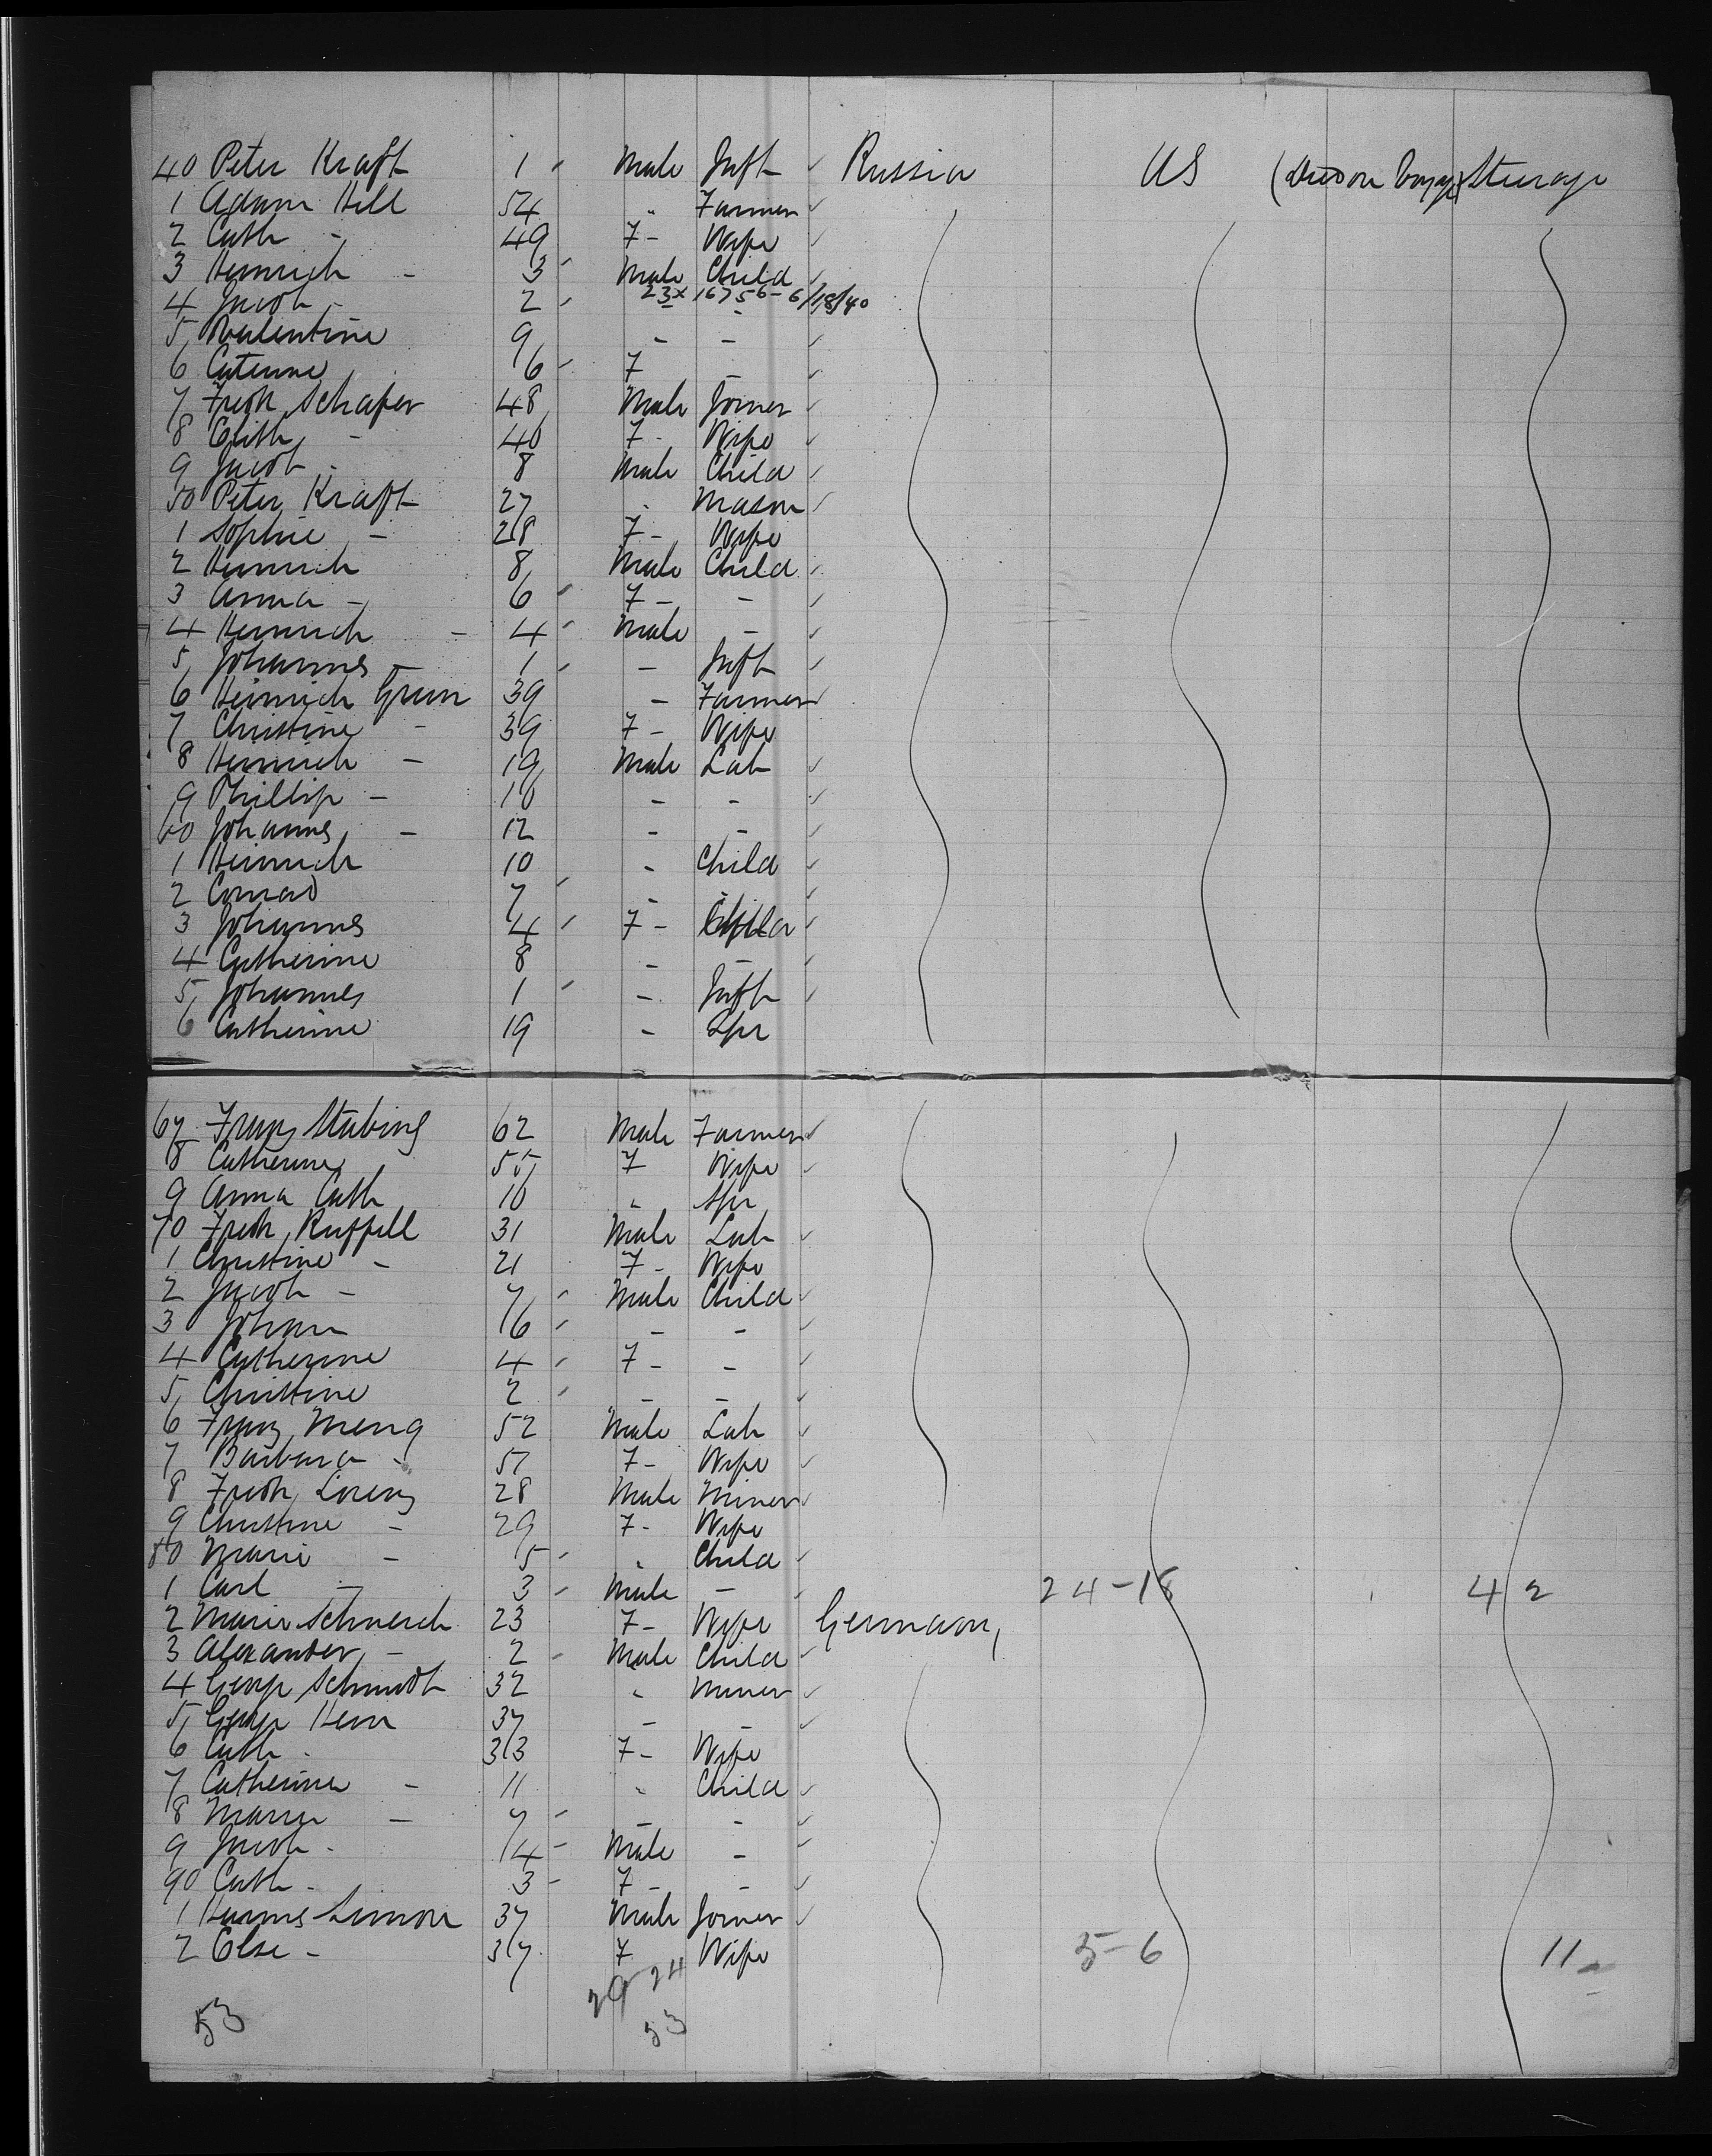 40 Peter Kraft 1 - Male Inft Russia US (Died on Voyage) Steerage
1 Adam Hill 54 " Farmer
2 Cath - 49 F - Wife
3 Heinrich - 3 - Male Child
4 Jacob - 2 - 23x 16756-6/18/40
5 Valentine 9 - -
6 6 - F -
7 Fredk Schafer 48 Male Joiner
8 - 40 F - Wife
9 Jacob - 8 Male Child
50 Peter Kraft 27 " Mason
1 Sophie - 28 F - Wife
2 Heinrich 8 Male Child
3 Anna - 6 - F - -
4 Heinrich - 4 - Male -
5 Johannes - 1 - - Inft
6 Heinrich Grun 39 - Farmer
7 Christine - 39 F - Wife
8 Heinrich - 19 Male Lab
9 Phillip - 16 - -
60 Johannes - 12 - -
1 Heinrich 10 " Child
2 Conrad 7 - - "
3 Johannes 4 - F - Child
4 Catherine 8 - -
5 Johannes 1 - - Inft
6 Catherine 19 - Spr
67 Franz Stubing 62 Male Farmer
8 Catherine 55 F Wife
9 Anna Cath 16 " Spr
70 Fredk Ruppell 31 Male Lab
1 Christine - 21 F - Wife
2 Jacob - 7 - Male Child
3 Johann 6 - - -
4 Catherine 4 - F - -
5 Christine 2 - - -
6 Franz Meng 52 Male Lab
7 Barbara - 51 F - Wife
8 Fredk Lorenz 28 Male Miner
9 Christine - 29 F - Wife
80 Marie - 5 - " Child
1 Carl - 3 - Male - 24-18 42
2 Marie Schmerch 23 F - Wife Germany
3 Alexander - 2 - Male Child
4 George Schmidt 32 " Miner
5 George Henn 37 - -
6 Cath - 33 F - Wife
7 Catherine - 11 " Child
8 Marie - 7 - - -
9 Jacob - 4 - Male -
90 Cath - 3 - F - -
1 Simon 37 Male Joiner
2 Else - 37 F Wife 5-6 11
29 24
53 53